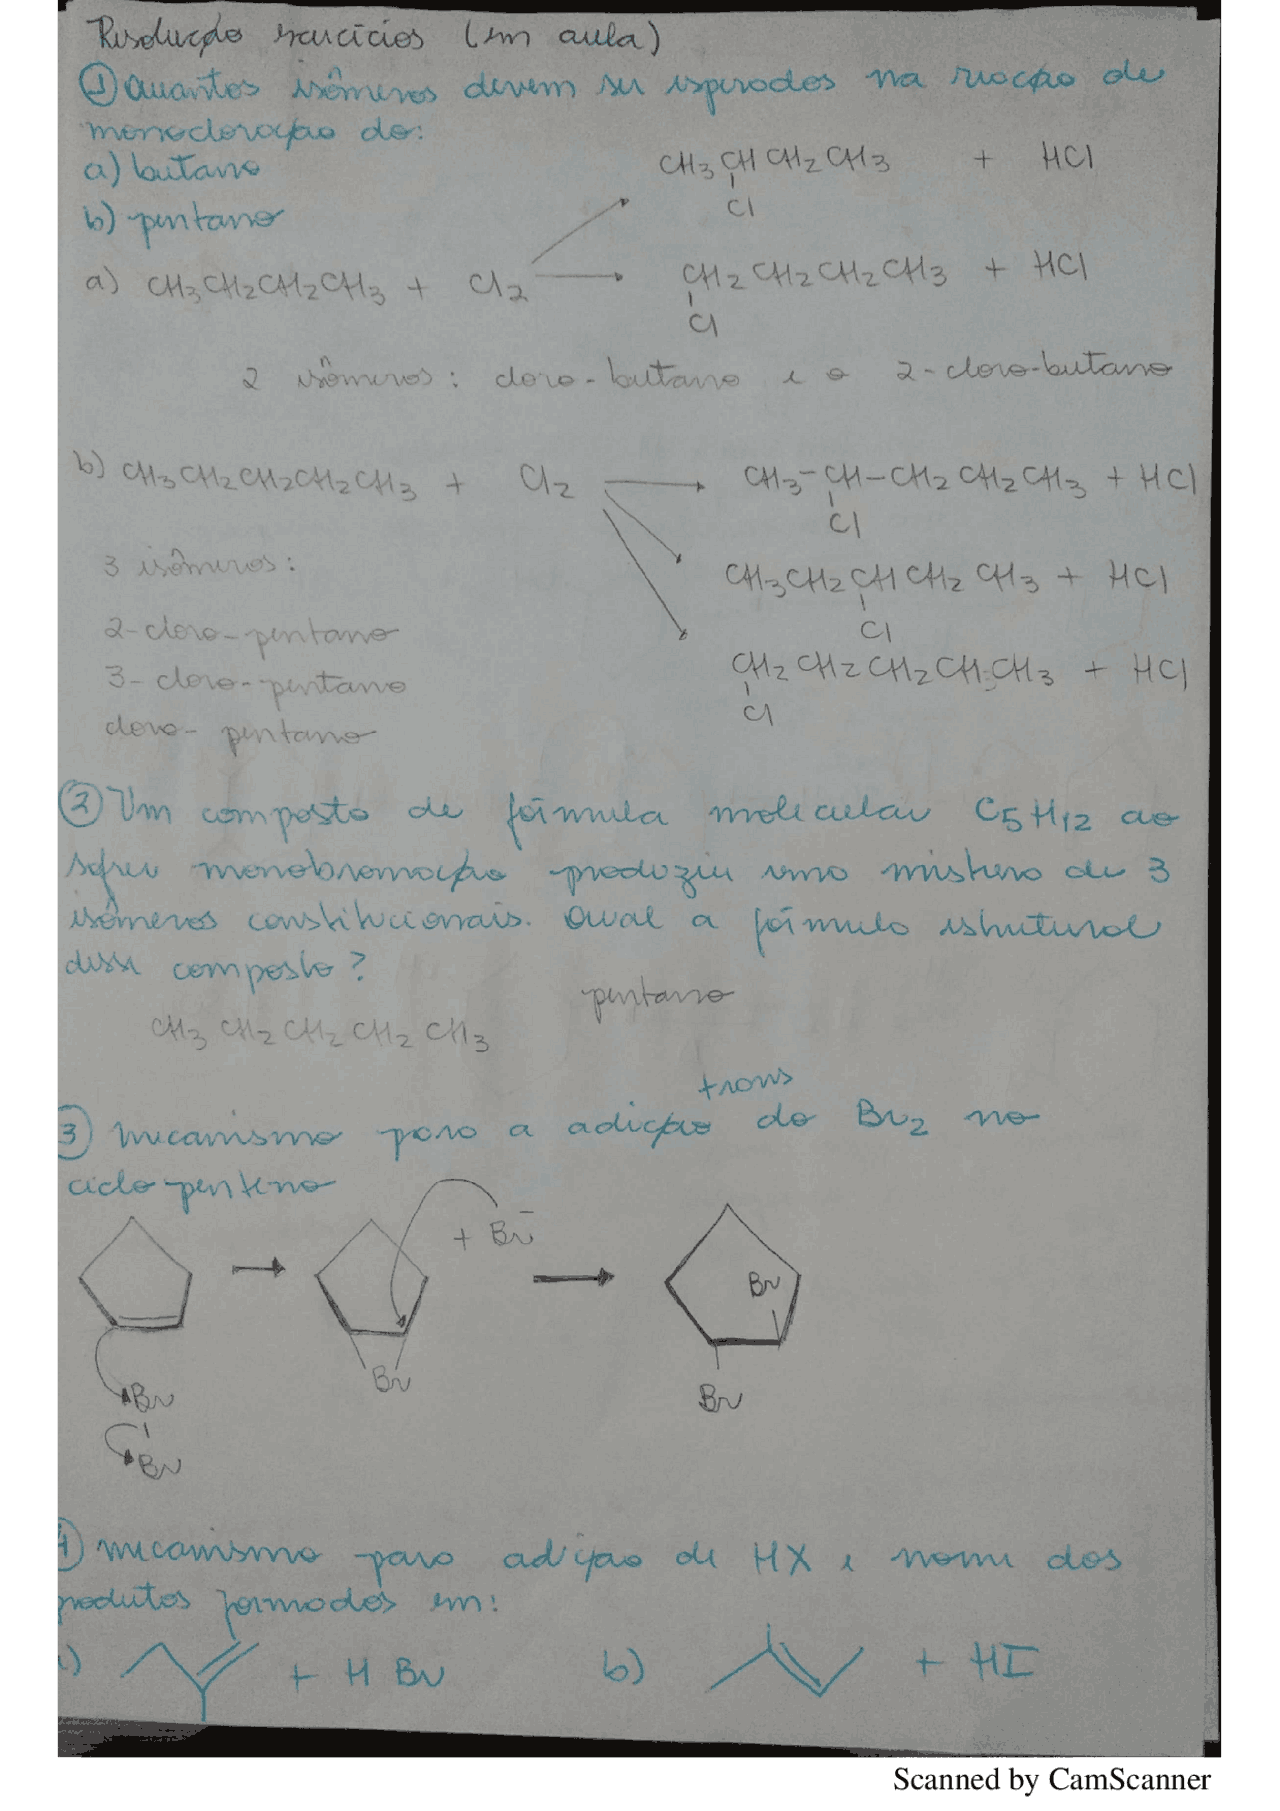 Resolução exercícios (em aula)
① Quantos isômeros devem ser esperados na reação de
monocloração do:
a) butano
b) pentano
CH3CHCH2CH3 + HCl
Cl
a) CH3CH2CH2CH3 + Cl2
CH2CH2CH2CH3 + HCl
Cl
2 isômeros: cloro-butano e o 2-cloro-butano
b) CH3CH2CH2CH2CH3 + Cl2
CH3-CH-CH2CH2CH3 + HCl
Cl
3 isômeros:
CH3CH2CHCH2CH3 + HCl
Cl
2-cloro-pentano
3-cloro-pentano
cloro-pentano
CH2CH2CH2CH2CH3 + HCl
Cl
② Um composto de fórmula molecular C5H12 ao
sofrer monobromação produziu uma mistura de 3
isômeros constitucionais. Qual a fórmula estrutural
desse composto?
pentano
CH3CH2CH2CH2CH3
trans
3) mecanismo para a adição do Br2 no
ciclopenteno
+ Br-
Br
Br
Br
Br
Br
4) mecanismo para adição de HX e nome dos
produtos formados em:
) + HBr b) + HI
Scanned by CamScanner